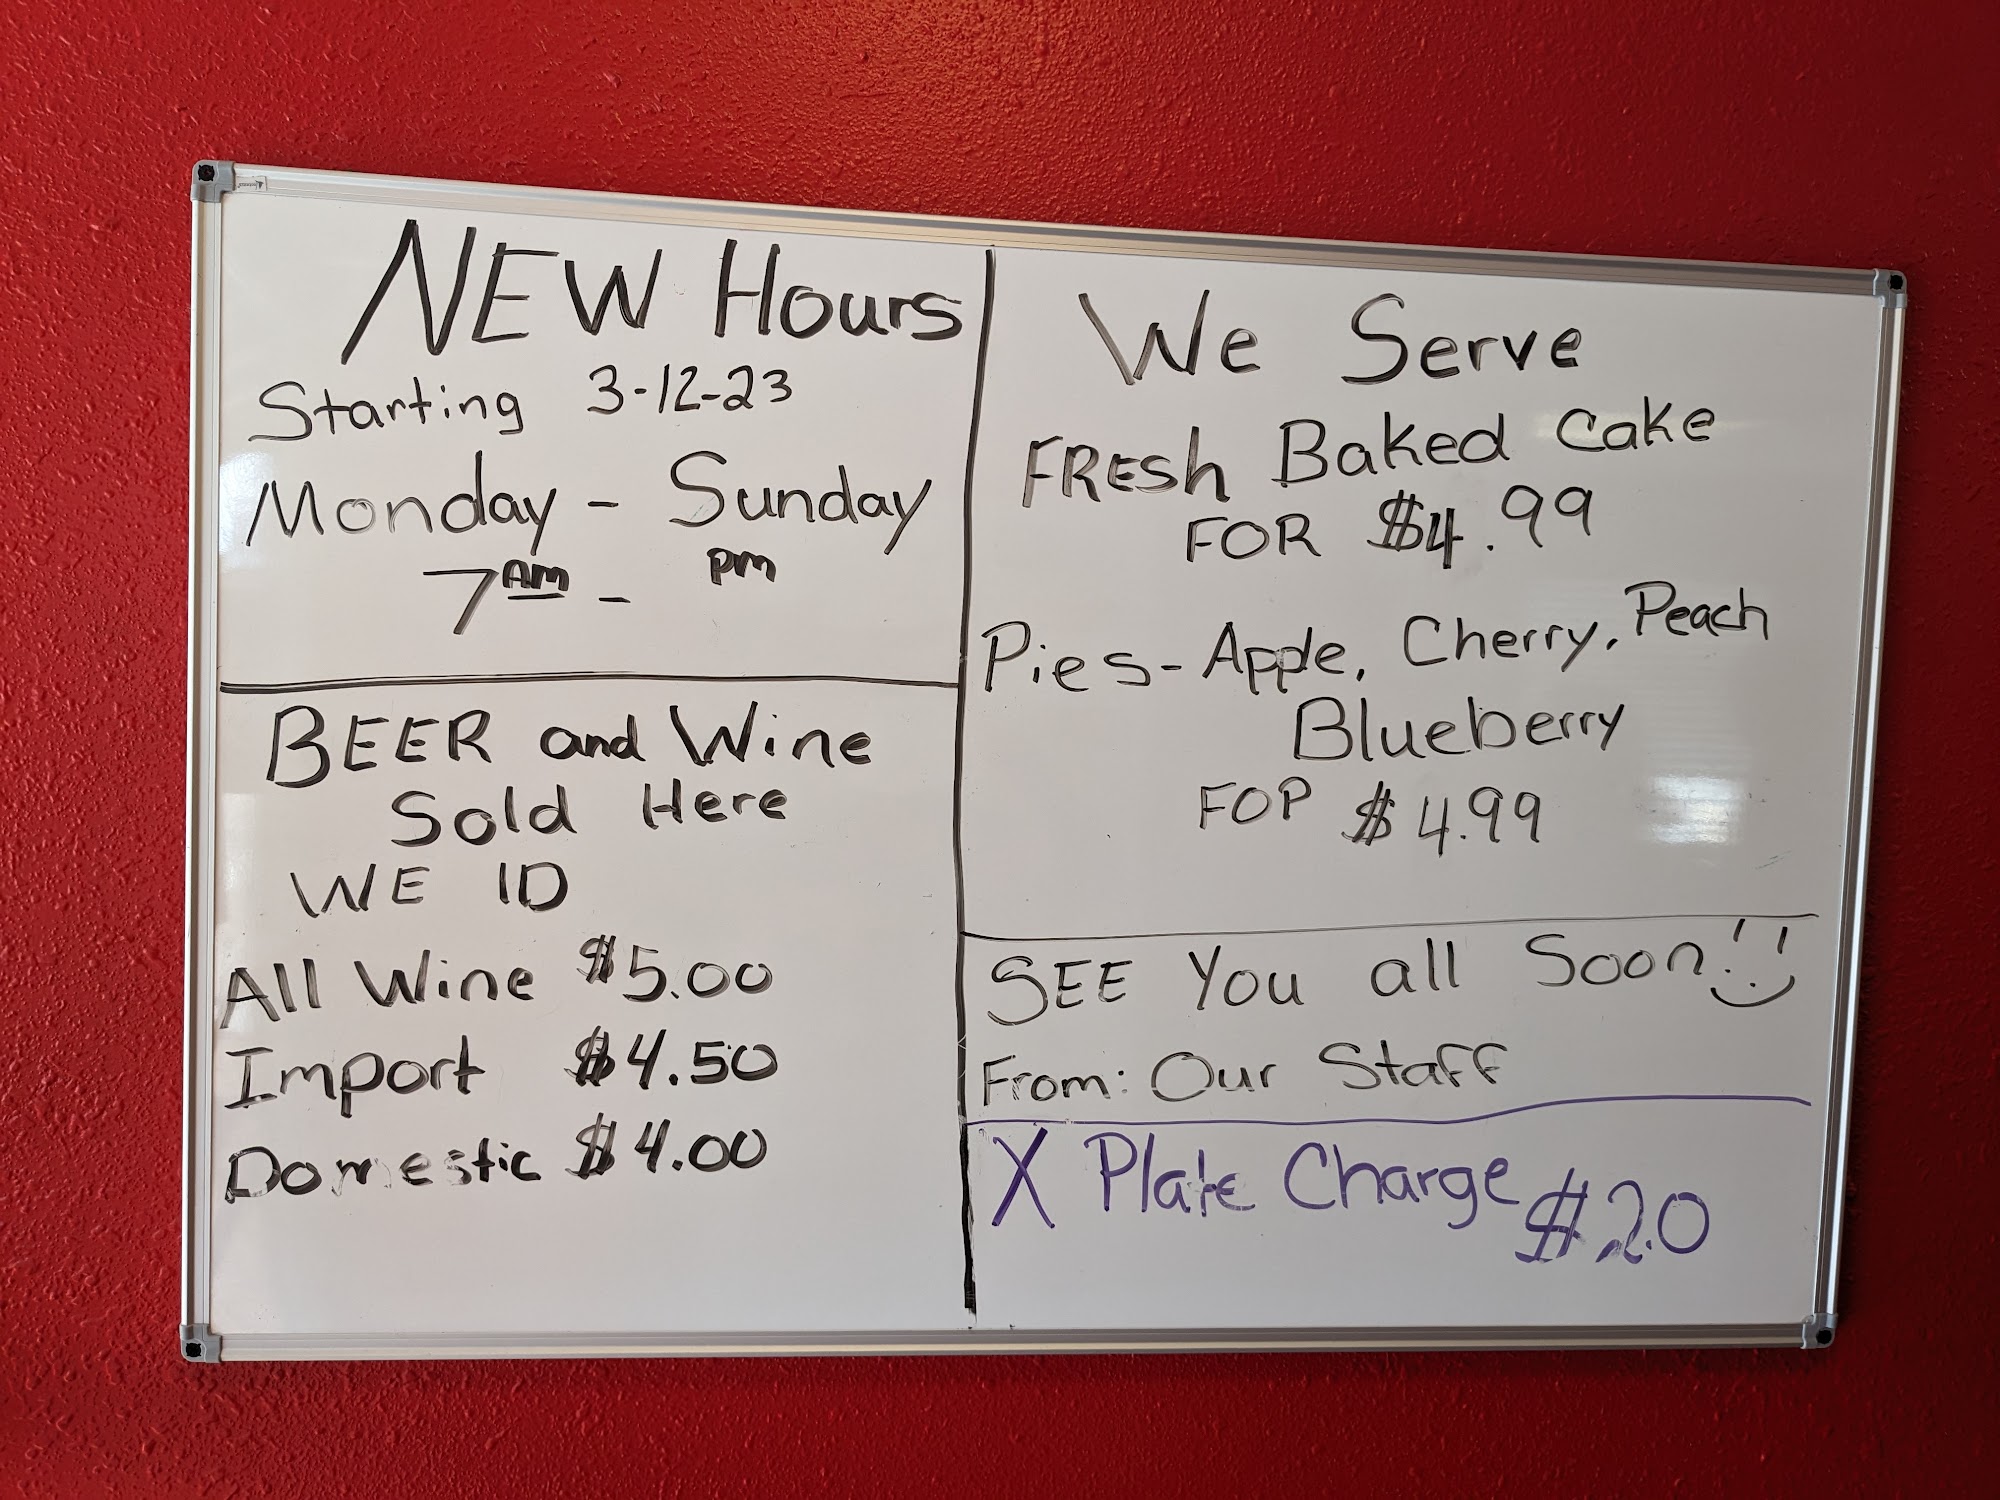 NEW Hours
Starting 3-12-23
Monday - Sunday
7AM - PM
BEER and Wine
Sold Here
WE ID
All Wine $5.00
Import $4.50
Domestic $4.00
We Serve
FRESh Baked Cake
FOR $4.99
Pies - Apple, Cherry, Peach
Blueberry
FOP $4.99
SEE You all Soon!
From: Our Staff
X Plate Charge $2.0